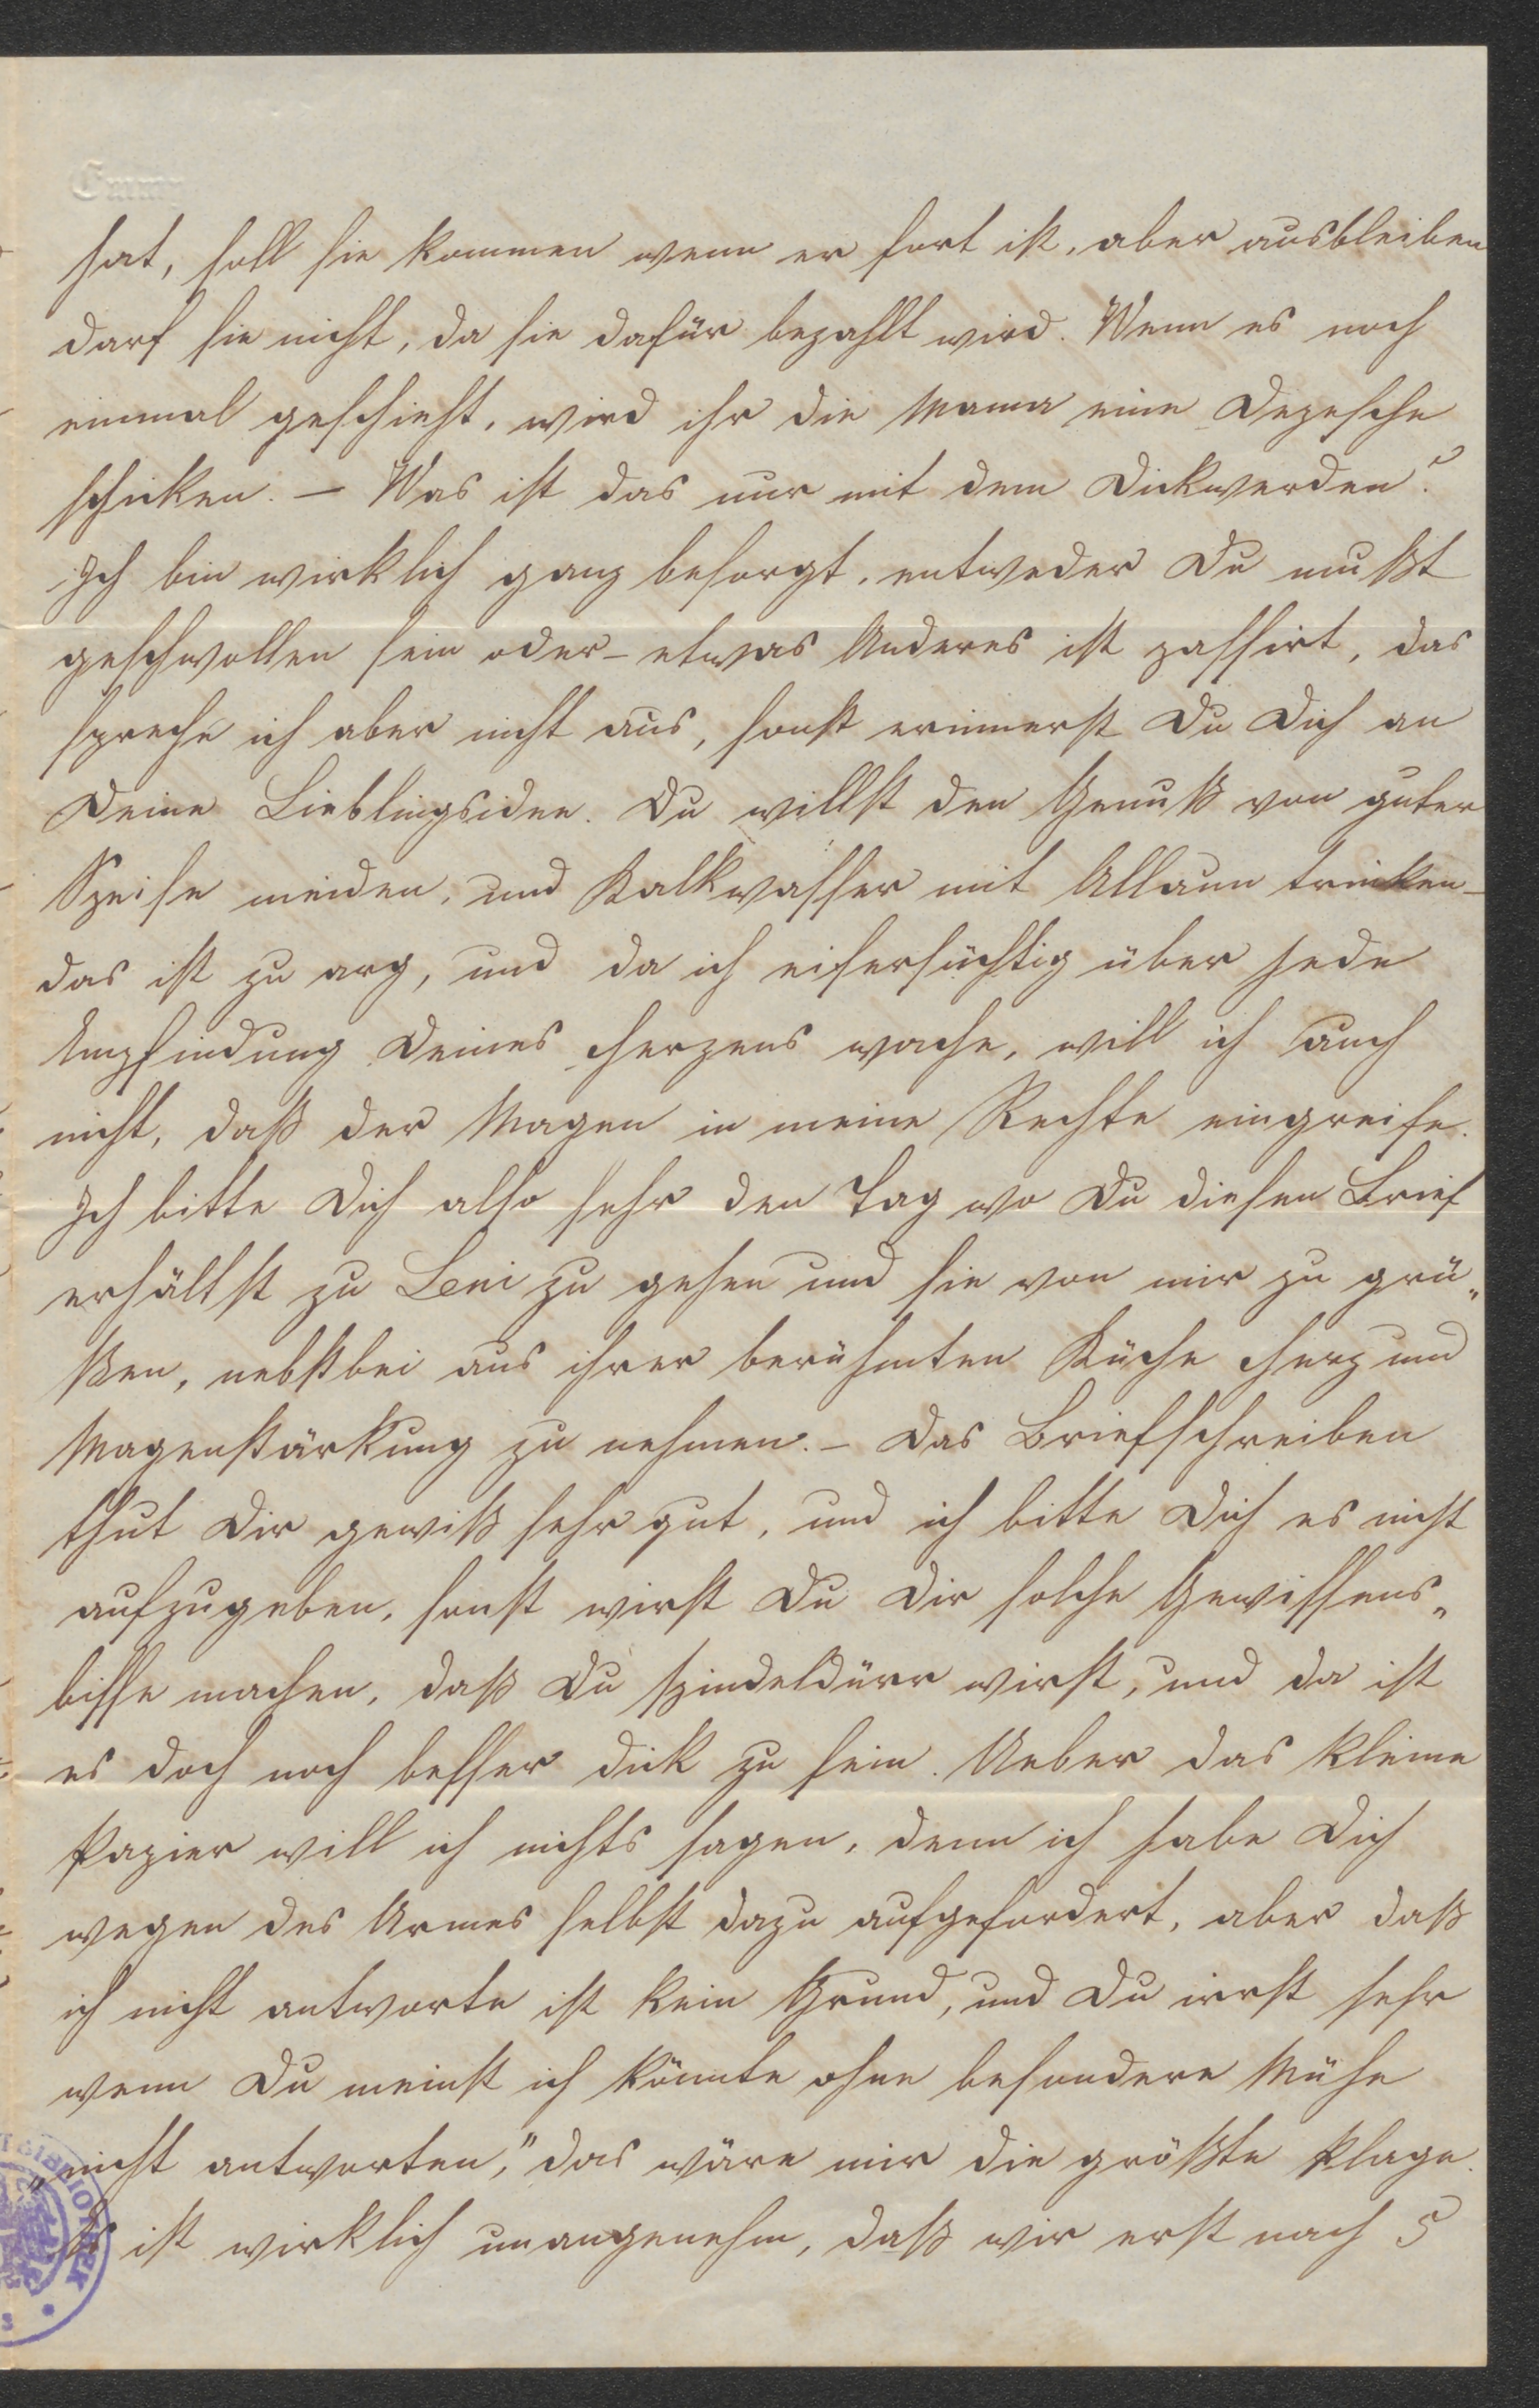 Emmy
hat, soll sie kommen wenn er fort ist, aber ausbleiben
darf sie nicht, da sie dafür bezahlt wird. Wenn es noch
einmal geschieht, wird ihr die Mama eine Depesche
schicken. — Was ist das nur mit dem Dickwerden?
Ich bin wirklich ganz besorgt, entweder Du mußt
geschwollen sein oder – etwas Anderes ist passirt, das
spreche ich aber nicht aus, sonst erinnerst Du Dich an
Deine Lieblingsidee. Du willst den Genuß von guter
Speise meiden, und Kalkwasser mit Allaun trinken –
das ist zu arg, und da ich eifersüchtig über jede
Empfindung Deines Herzens wache, will ich auch
nicht, daß der Magen in meine Rechte eingreife.
Ich bitte Dich also sehr den Tag wo Du diesen Brief
erhältst zu Leni zu gehen und sie von mir zu grü„
ßen, nebstbei aus ihrer berühmten Küche Herz und
Magenstärkung zu nehmen. – Das Briefschreiben
thut Dir gewiß sehr gut, und ich bitte Dich es nicht
aufzugeben, sonst wirst Du Dir solche Gewissens„
bisse machen, daß Du spindeldürr wirst, und da ist
es doch noch besser dick zu sein. Ueber das kleine
Papier will ich nichts sagen, denn ich habe Dich
wegen des Armes selbst dazu aufgefordert, aber daß
ich nicht antworte ist kein Grund, und Du irrst sehr
wenn Du meinst ich könnte ohne besondere Mühe
„nicht antworten,“ das wäre mir die größte Plage.
Es ist wirklich unangenehm, daß wir erst nach 5